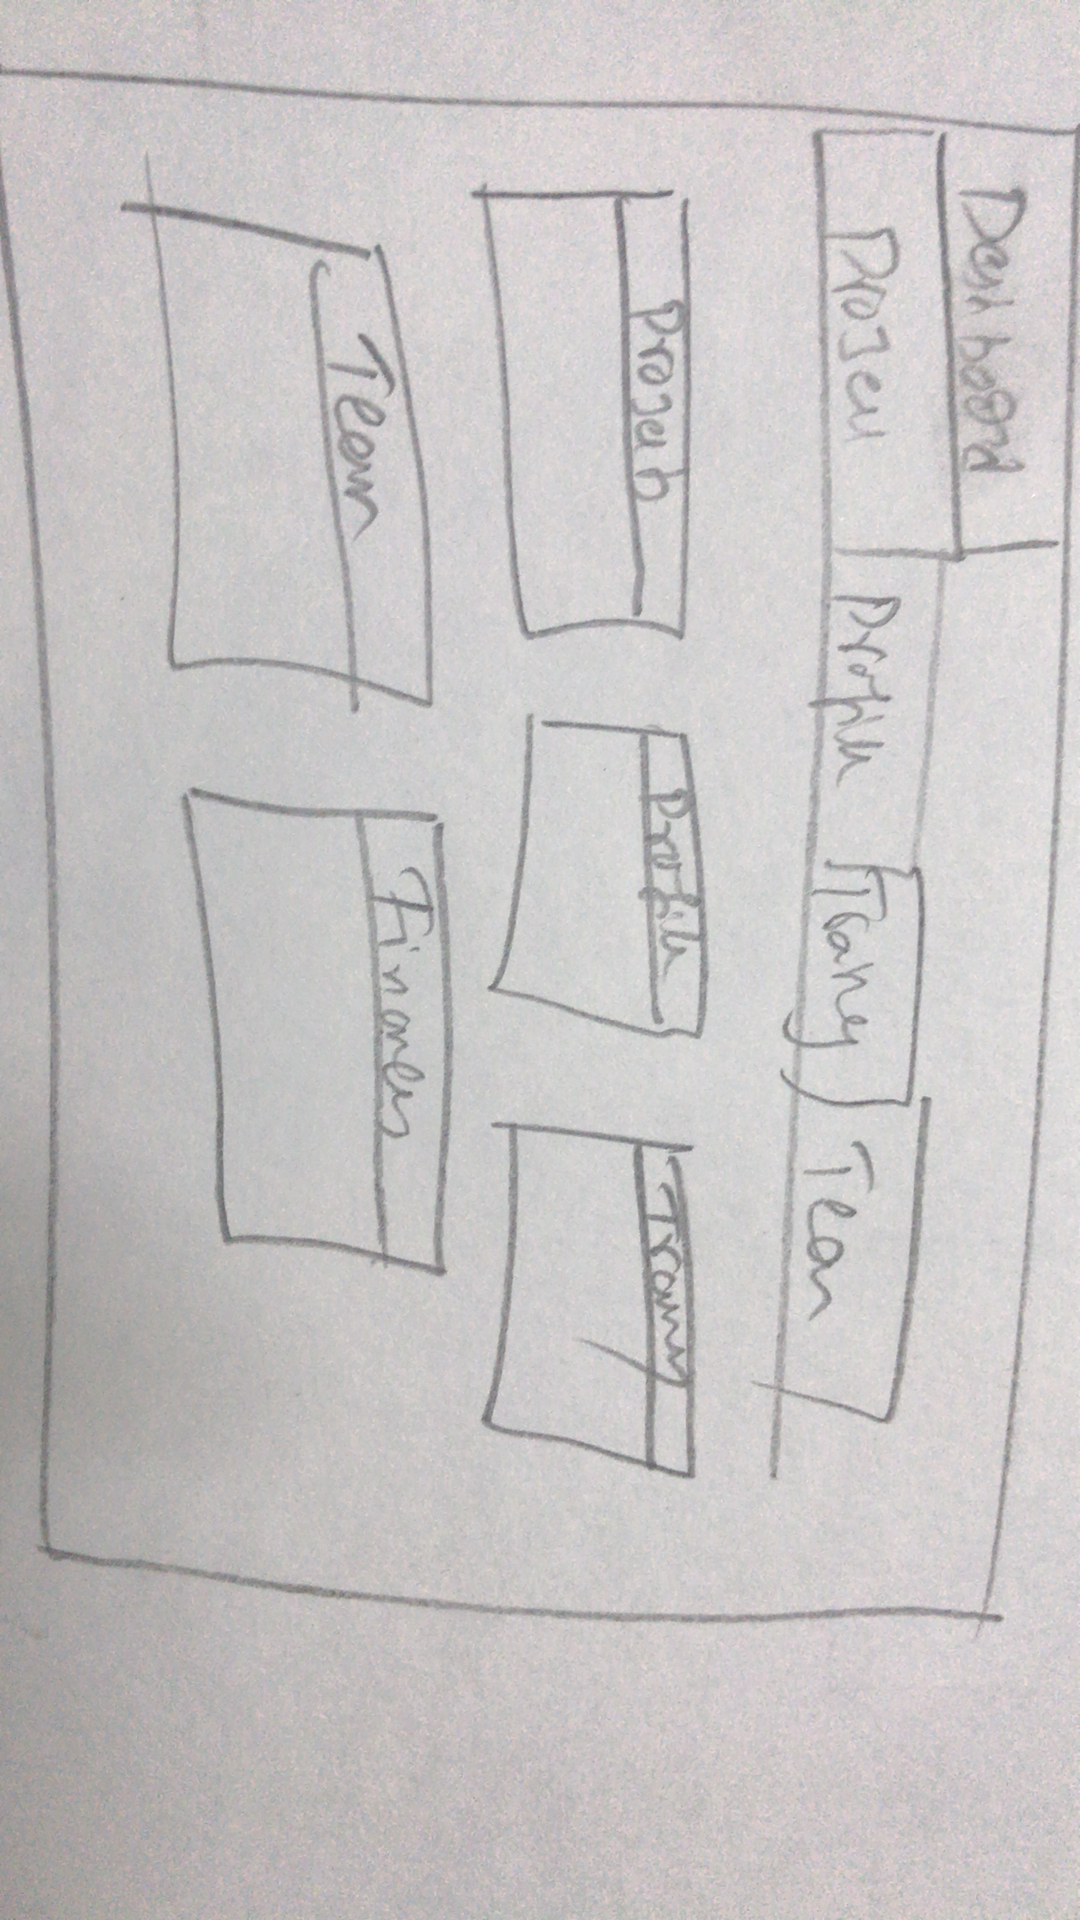 Dashboard
Project Profile Training Team
Projects Profile Training
Team Finances